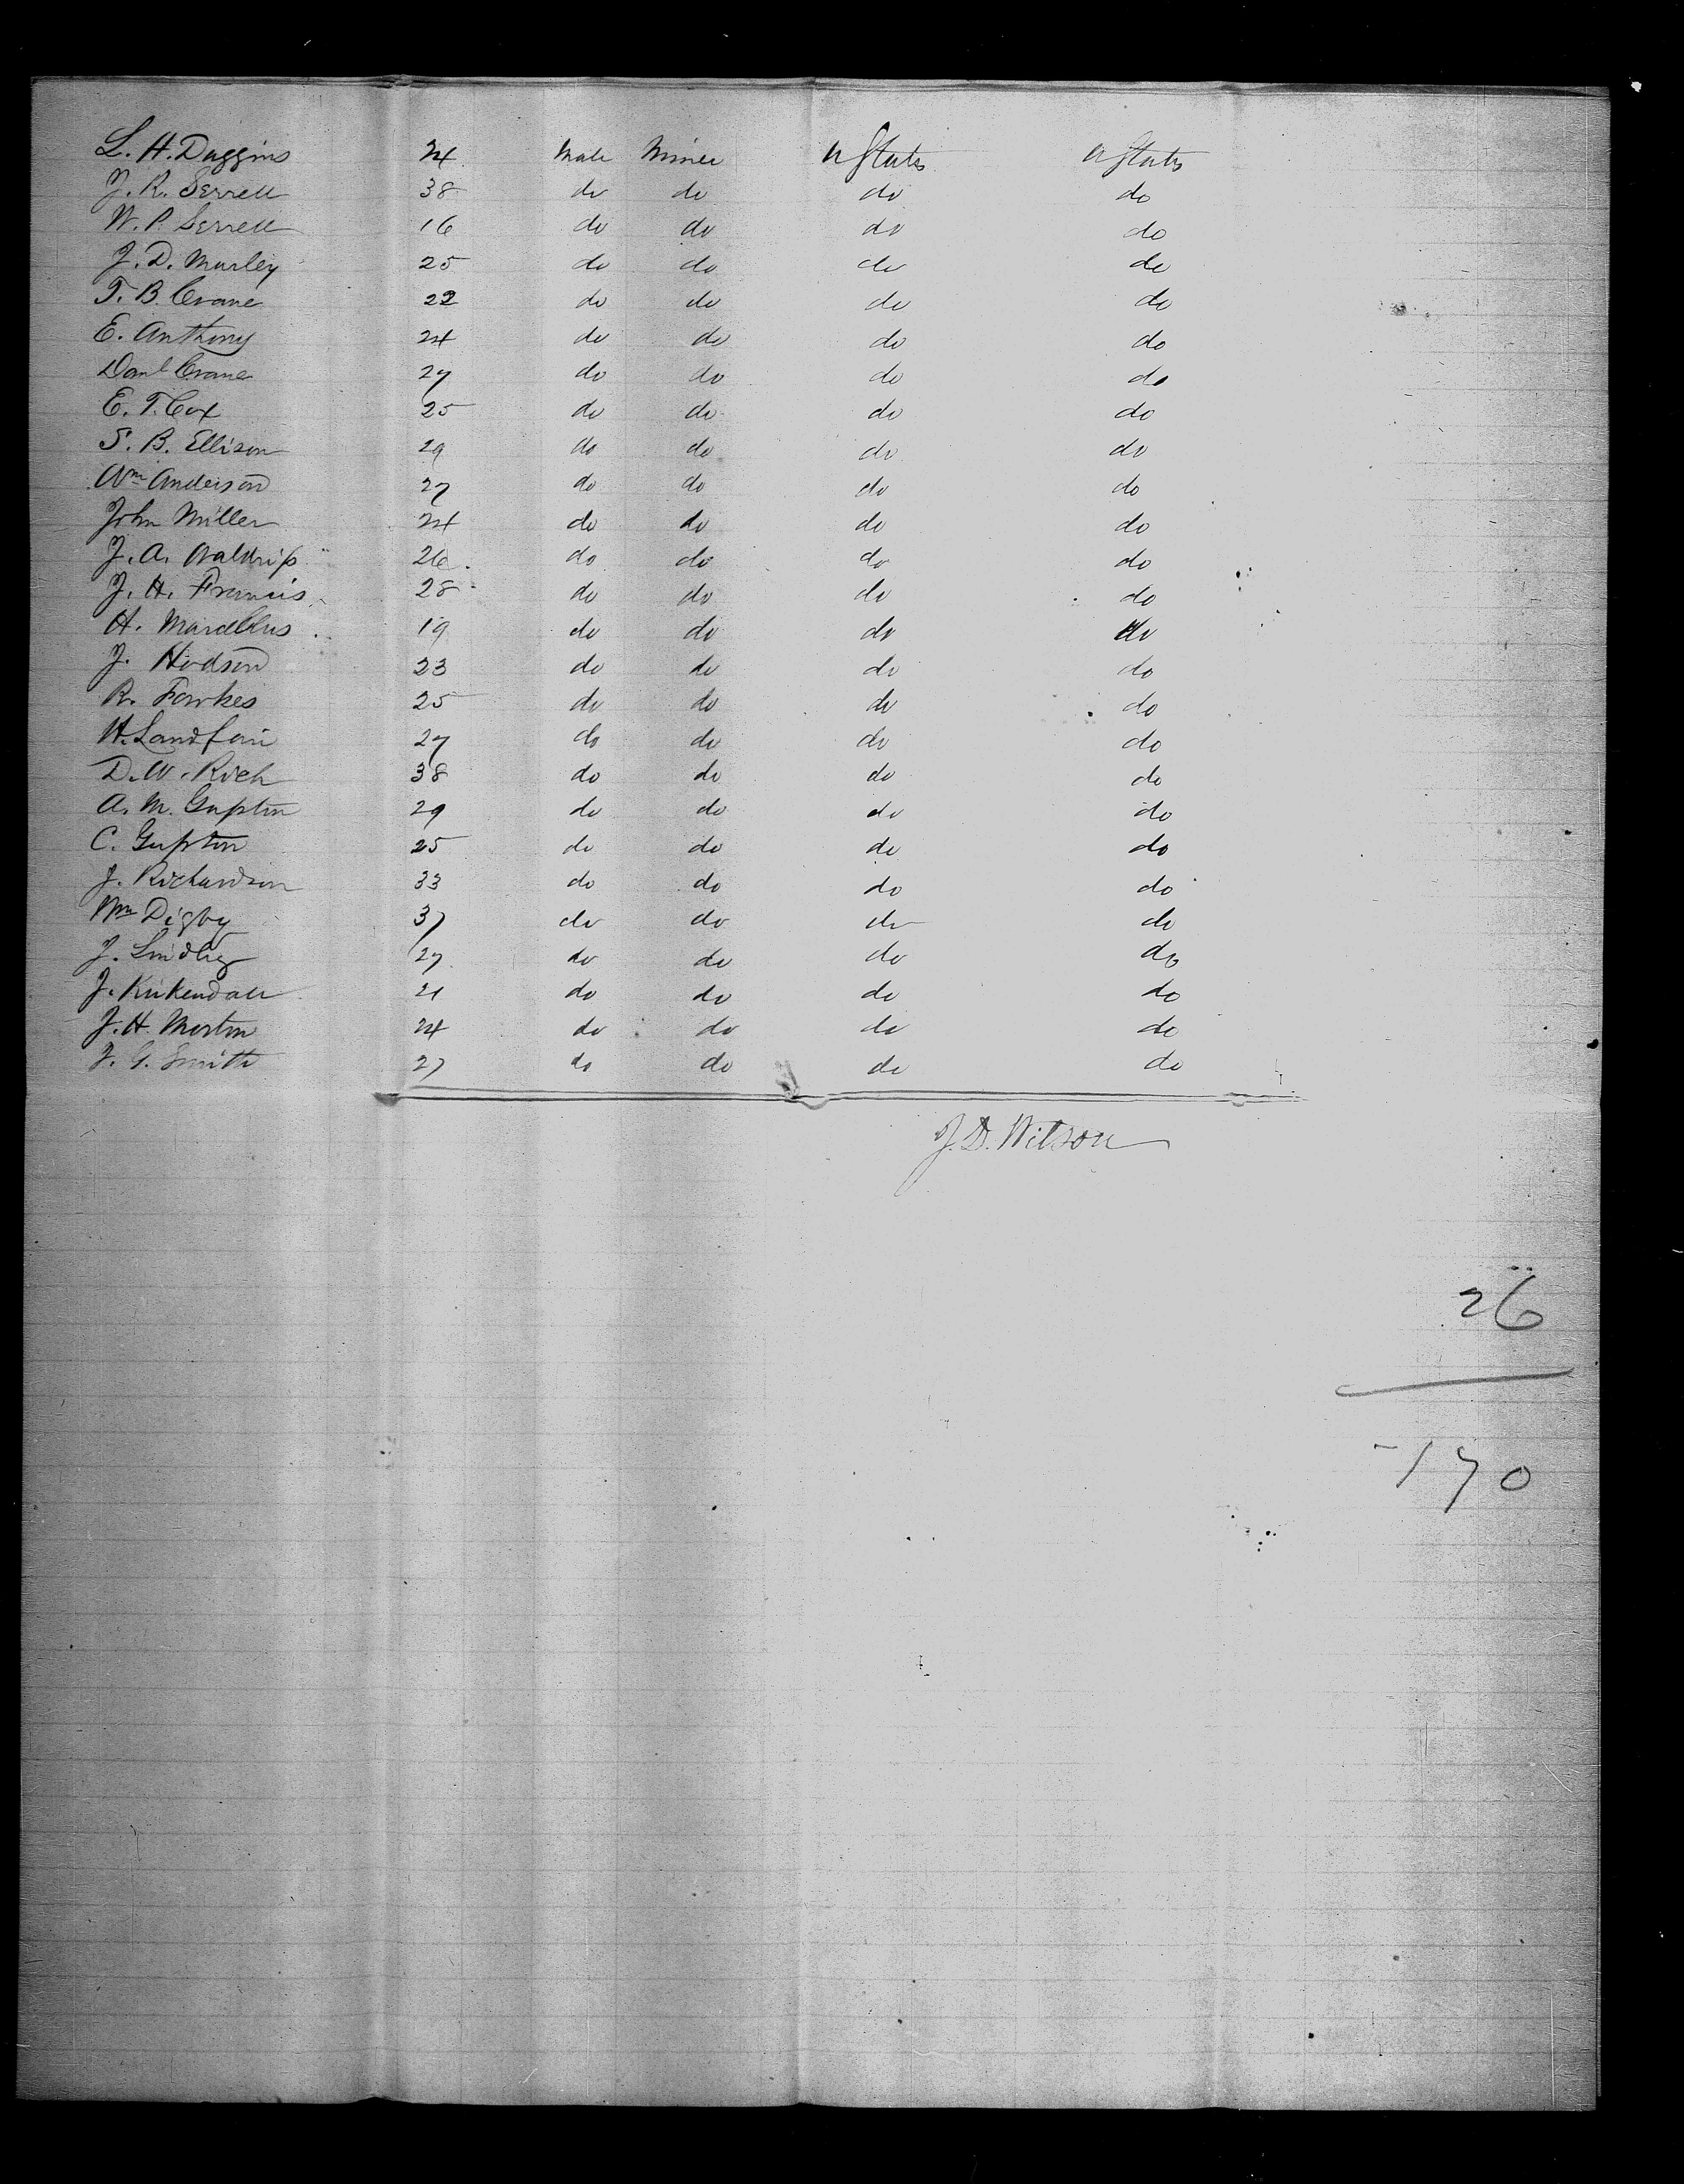 L. H. Duggins 24 Male Miner U States U States
J. R. Serrell 38 do do do do
W. P. Serrell 16 do do do do
J. D. Murley 25 do do do do
T. B. Crane 22 do do do do
E. Anthony 24 do do do do
Danl Crane 27 do do do do
E. T. Cox 25 do do do do
S. B. Ellison 29 do do do do
Wm Anderson 27 do do do do
John Miller 24 do do do do
J. A. Waldrip 26 do do do do
J. H. Francis 28 do do do do
H. Marcellus 19 do do do do
J. Hodson 23 do do do do
R. Fawkes 25 do do do do
H. Landfair 27 do do do do
D. W. Rich 38 do do do do
A. M. Gupton 29 do do do do
C. Gupton 25 do do do do
J. Richardson 33 do do do do
Wm Digby 37 do do do do
J. Lindley 27 do do do do
J. Kirkendall 21 do do do do
J. H. Morton 24 do do do do
J. G. Smith 27 do do do do
J. D. Wilson
26
170